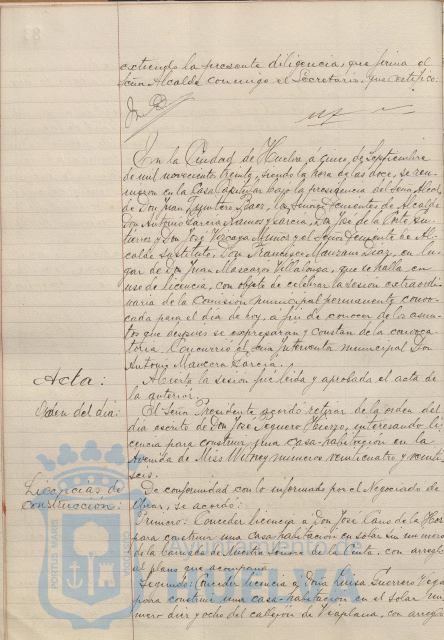 extiendo la presente diligencia, que firma el
Señor Alcalde conmigo el Secretario, que certifico:
En la Ciudad de Huelva á cinco de Septiembre
de mil novecientos treinta, siendo la hora de las doce, se reu-
nieron en la Casa Capitular bajo la presidencia del Señor Alcal-
de Don Juan Quintero Baez, los Señores Tenientes de Alcalde
Don Antonio García Ramos y García, Don José de la Corte Gu-
tiérrez y Don José Vergara Muñoz y el Señor Teniente de Al-
calde Sustituto, Don Francisco Manzano Díaz, en lu-
gar de Don Juan Mascarós Villalonga, que se halla en
uso de licencia, con objeto de celebrar la sesión extraordi-
naria de la Comisión municipal permanente convo-
cada para el día de hoy, á fin de conocer de los asun-
tos que después se expresarán y constan de la convoca-
toria. Concurrió el Señor Interventor municipal Don
Antonio Mancera García.
Acta:
Abierta la sesión fué leída y aprobada el acta de
la anterior.
Orden del día:
El Señor Presidente acordó retirar de la orden del
día escrito de Don José interesando li-
cencia para construir una casa-habitación en la
Avenida de Miss Whitney números veinticuatro y veinti-
seis.
Licencias de
construcción:
De conformidad con lo informado por el Negociado de
Obras, se acordó:
Primero: Conceder licencia a Don José Cano de la
para construir una casa-habitación en solar sin número
de la Barriada de Nuestra Señora de la Cinta, con arreglo
al plano que acompaña.
Segundo: Conceder licencia á Doña Luisa Guerrero Vega
para construir una casa-habitación en el solar nú-
mero diez y ocho del callejón de con arreglo
PORTUS MARIS
Ayuntamiento de
HUELVA